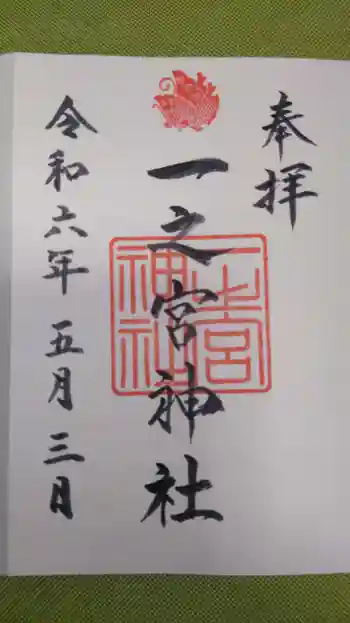 奉拝
一之宮神社
一之宮神社
令和六年五月三日